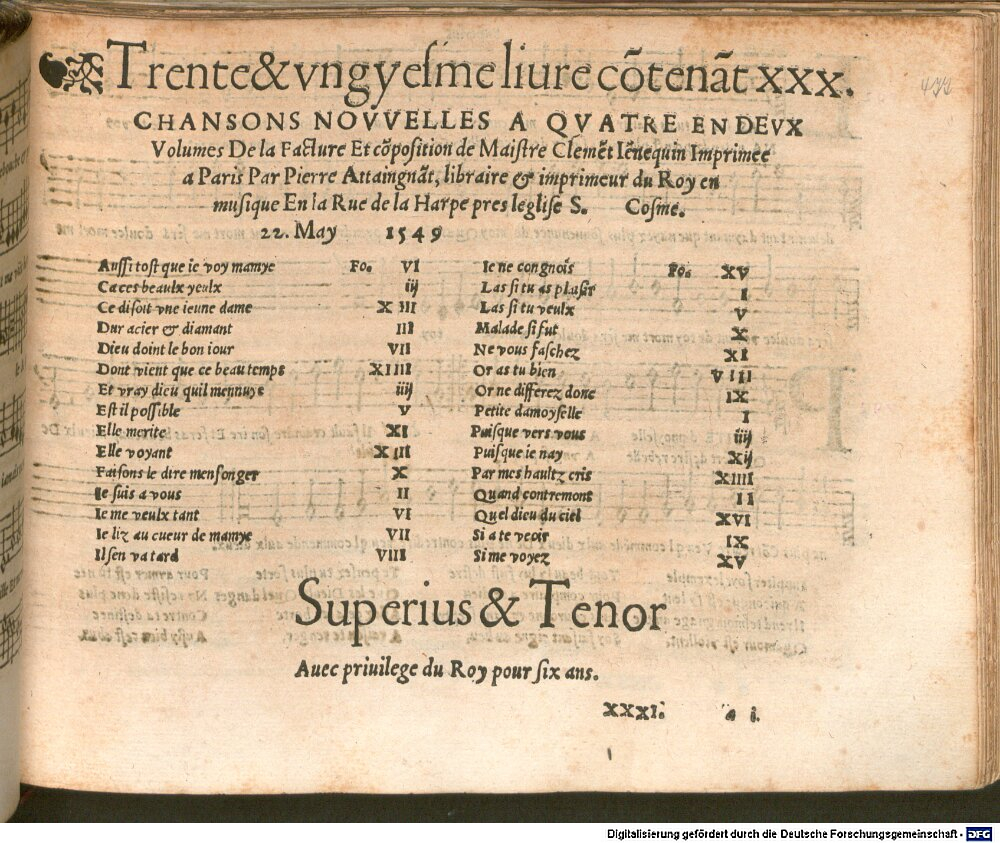 Trente&vngyesme liure cõtenãt xxx.
CHANSONS NOVVELLES A QVATRE EN DEVX
Volumes De la Facture Et cõposition de Maistre Clemẽt Iẽnequin Imprimee
a Paris Par Pierre Attaingnãt, libraire & imprimeur du Roy en
musique En la Rue de la Harpe pres leglise S. Cosme.
22. May 1549
Aussi tost que ie voy mamye Fo. VI
Ca ces beaulx yeulx iij
Ce disoit vne ieune dame XIII
Dur acier & diamant III
Dieu doint le bon iour VII
Dont vient que ce beau temps XIIII
Et vray dieu quil mennuye iiij
Est il possible V
Elle merite XI
Elle voyant XIII
Faisons le dire mensonger X
Ie suis a vous II
Ie me veulx tant VI
Ie liz au cueur de mamye VII
Il sen va tard VIII
Ie ne congnois Fo. XV
Las si tu as plusir I
Las si tu veulx V
Malade si fut X
Ne vous faschez XI
Or as tu bien VIII
Or ne differez donc IX
Petite damoyselle I
Puisque vers vous iiij
Puisque ie nay Xij
Par mes haultz cris XIIII
Quand contremont II
Quel dieu du ciel XVI
Si a te veoir IX
Si me voyez XV
Superius & Tenor
Auec priuilege du Roy pour six ans.
XXXI. a i.
Digitalisierung gefördert durch die Deutsche Forschungsgemeinschaft - DFG